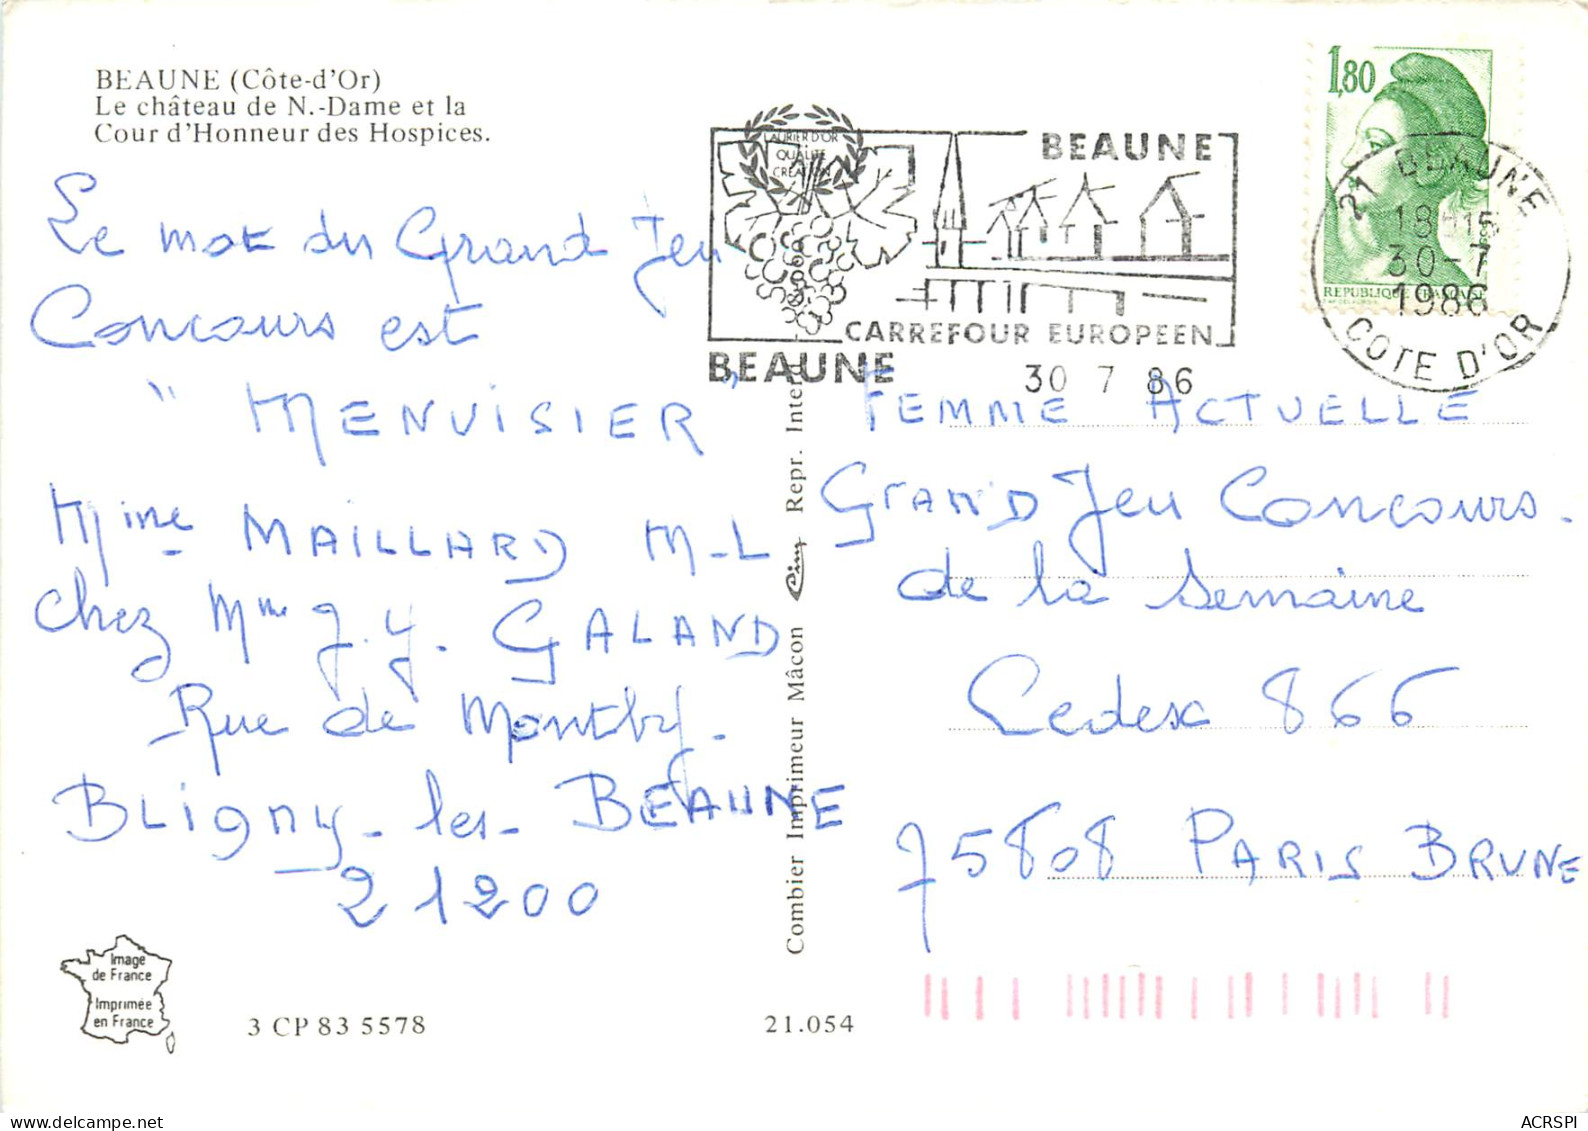 BEAUNE (Côte-d'Or)
Le château de N.-Dame et la
Cour d'Honneur des Hospices.
Le mot du Grand Jeu
Concours est
" MENUISIER "
Mme MAILLARD M-L
chez Mme J.Y. GALAND
Rue de Montby.
BLigny-les-BEAUNE
21200
Image
de France
Imprimée
en France
3 CP 83 5578
21.054
Combier Imprimeur Mâcon Cim Repr. Interd.
LAURIER D'OR
QUALITE
CREATION
BEAUNE
CARREFOUR EUROPEEN
BEAUNE
30 7 86
1,80
REPUBLIQUE FRANCAISE
21 BEAUNE
18H15
30-7
1986
COTE D'OR
FEMME ACTUELLE
GRAND Jeu Concours.
de la Semaine
Cedex 866
75808 PARIS BRUNE
ACRSPI